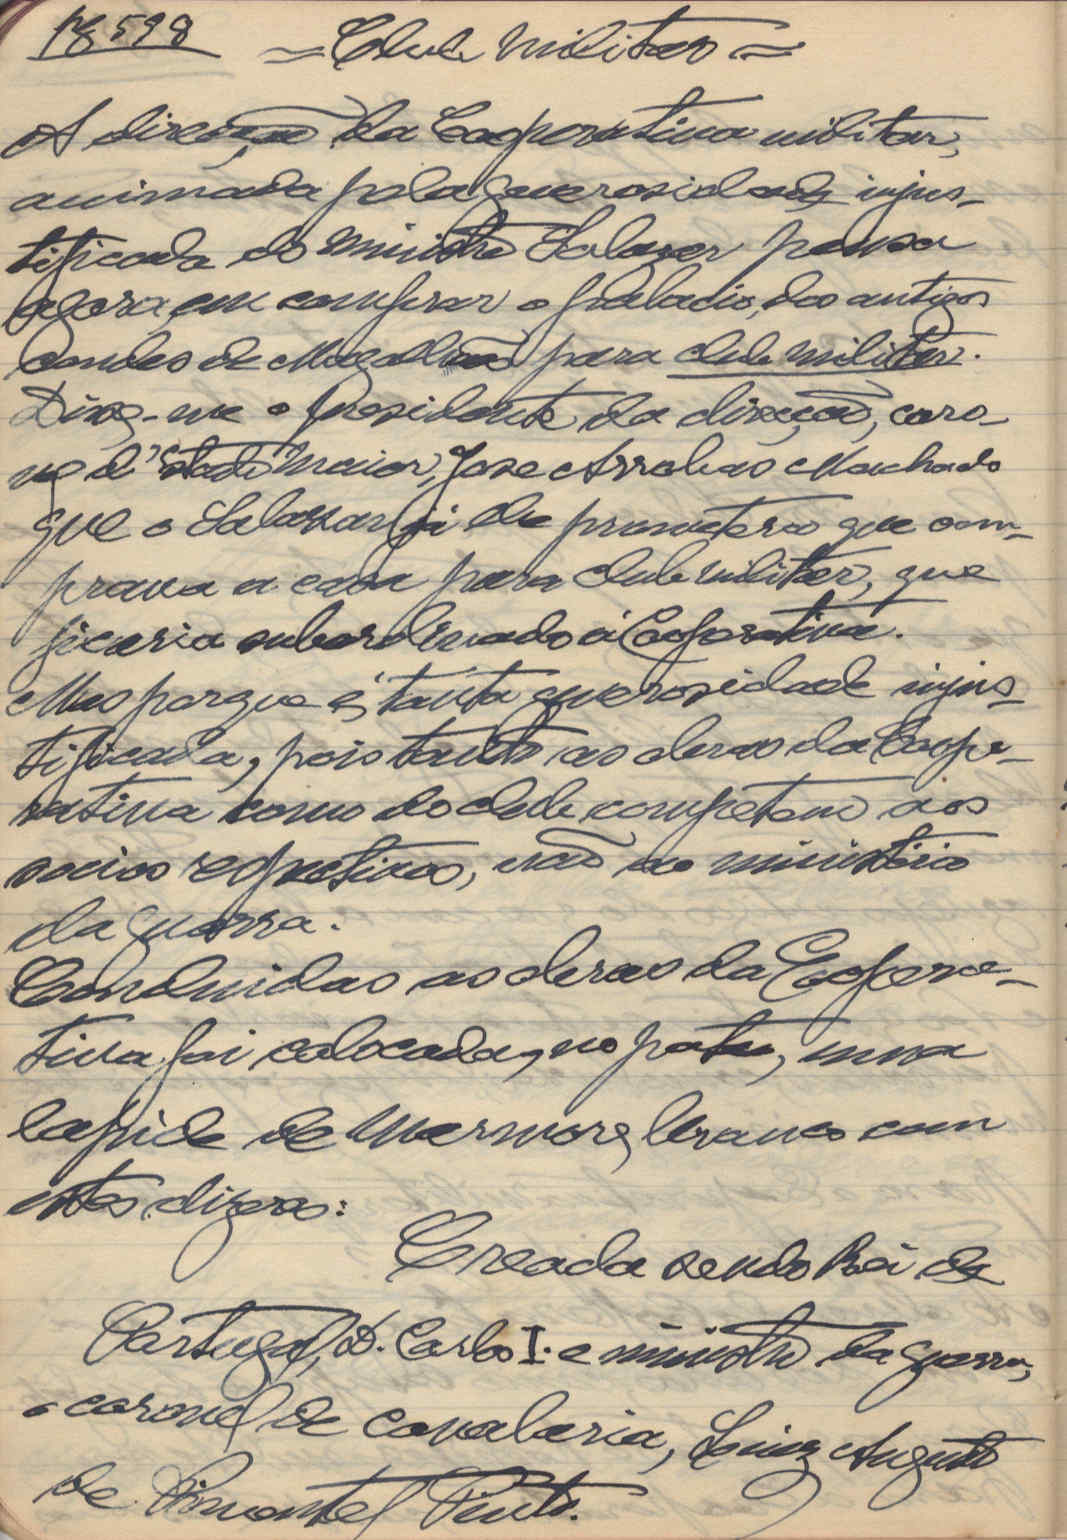 pg 598
= Club militar =
A direcção da Cooperativa militar,
animada pela generosidade injus-
tificada do ministro Salazar pensa
agora, em comprar o palacio, dos antigos
condes de Magalhães para club militar.
Disse-me o presidente da direcção, coro-
nel d'Estado Maior, Jose Arrobas Machado
que o Salazar já lhe prometera que com-
prava a casa para club militar, que
ficaria subordinado á Cooperativa.
Mas porque é, tanta generosidade injus-
tificada, pois tanto as obras da Coope-
rativa como do club competem aos
socios respectivos, não ao ministerio
da guerra.
Concluidas as obras da Coopera-
tiva foi colocada, no pateo, uma
lapide de marmore, branco com
estes dizeres:
Creada sendo Rei de
Portugal, D. Carlos I. e ministro da guerra,
o coronel de cavalaria, Luiz Augusto
de Pimentel Pinto.